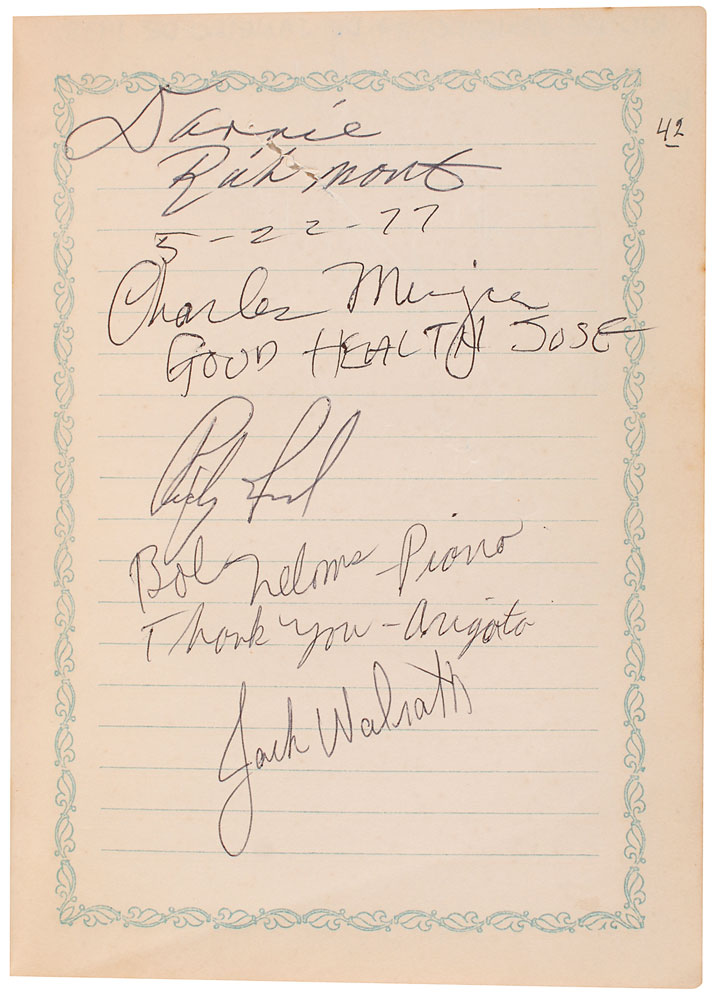 Dannie
Richmond
5-22-77
Charles Mingus
GOOD HEALTH JOSE
Ricky Ford
Bob Neloms Piano
Thank You - Arigato
Jack Walrath
42